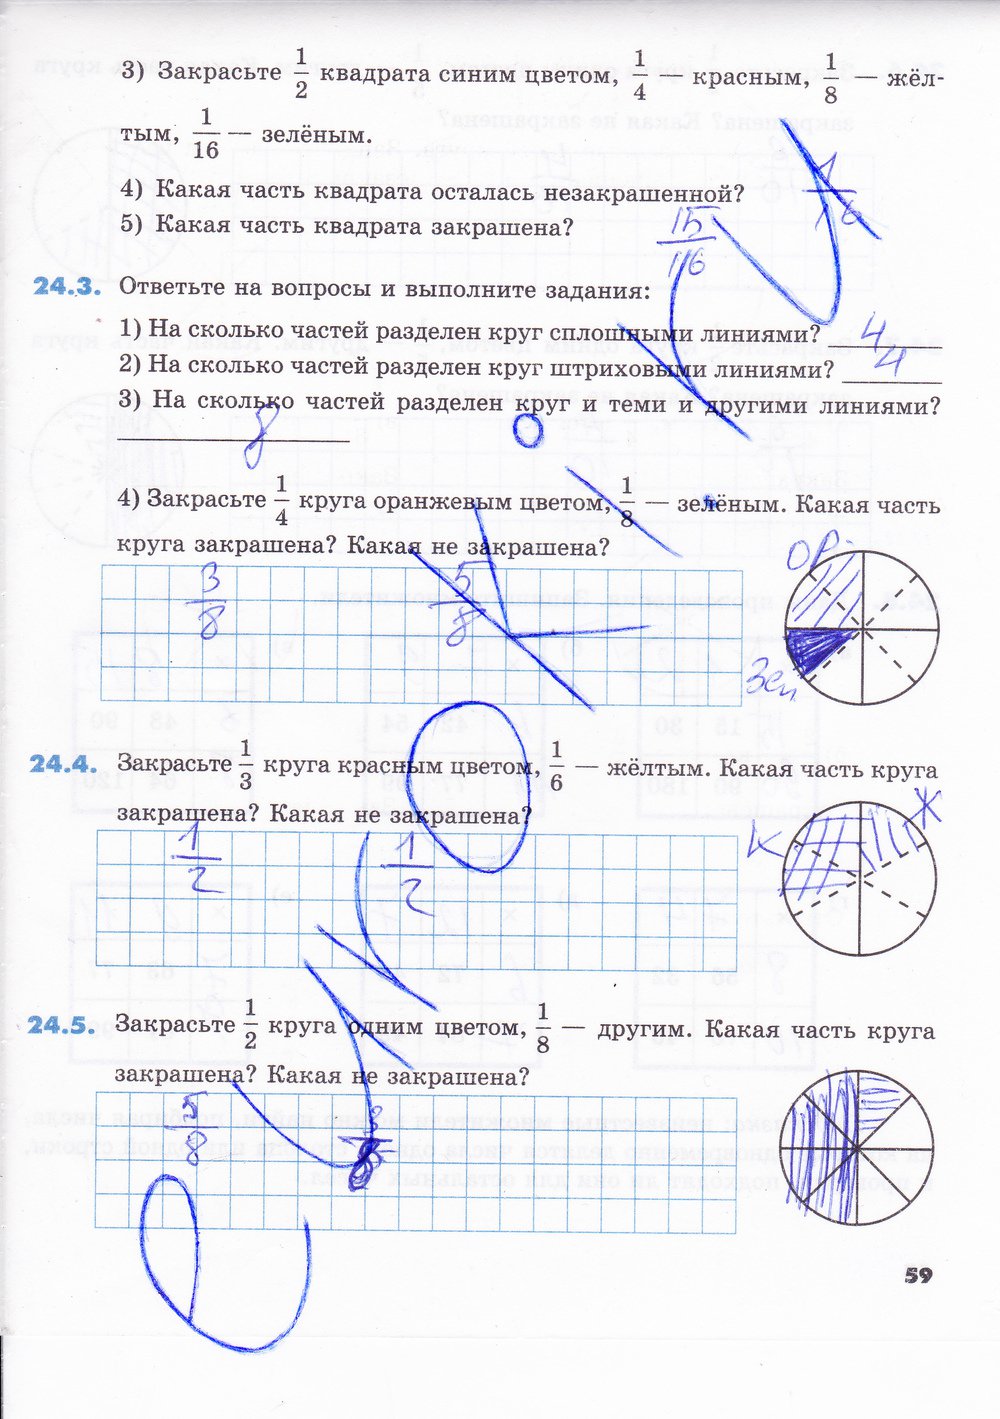 3) Закрасьте 1/2 квадрата синим цветом, 1/4 — красным, 1/8 — жёл-
тым, 1/16 — зелёным.
4) Какая часть квадрата осталась незакрашенной? 1/16
5) Какая часть квадрата закрашена? 15/16
24.3. Ответьте на вопросы и выполните задания:
1) На сколько частей разделен круг сплошными линиями? 4
2) На сколько частей разделен круг штриховыми линиями? 4
3) На сколько частей разделен круг и теми и другими линиями?
8
4) Закрасьте 1/4 круга оранжевым цветом, 1/8 — зелёным. Какая часть
круга закрашена? Какая не закрашена?
3/8 5/8
ор.
Зел
24.4. Закрасьте 1/3 круга красным цветом, 1/6 — жёлтым. Какая часть круга
закрашена? Какая не закрашена?
1/2 1/2
К Ж
24.5. Закрасьте 1/2 круга одним цветом, 1/8 — другим. Какая часть круга
закрашена? Какая не закрашена?
5/8 3/8
59